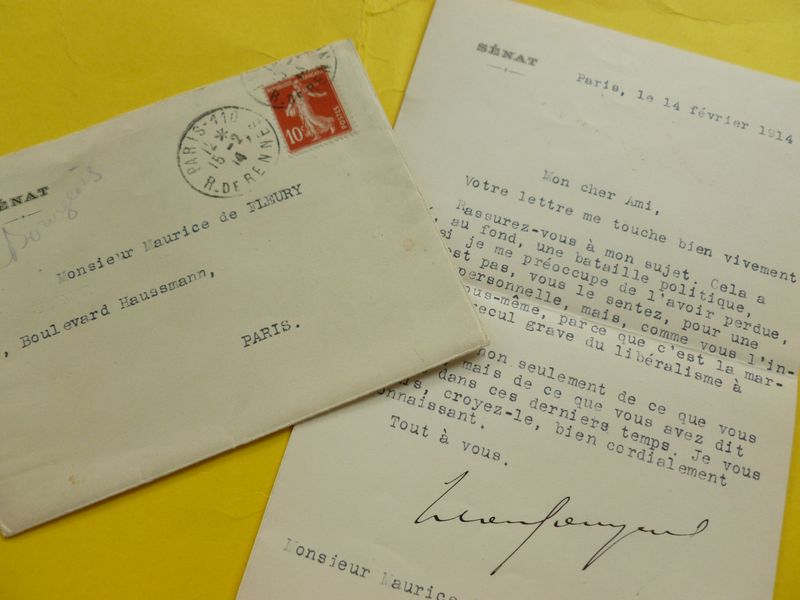 SÉNAT
Bourgeois
PARIS-110
12 * 15-2 14
R. DE RENNES
10c
POSTES
Monsieur Maurice de FLEURY
, Boulevard Haussmann,
PARIS.
SÉNAT
Paris, le 14 février 1914
Mon cher Ami,
Votre lettre me touche bien vivement
Rassurez-vous à mon sujet. Cela a
, au fond, une bataille politique,
si je me préoccupe de l'avoir perdue,
est pas, vous le sentez, pour une
personnelle, mais, comme vous l'in-
ous-même, parce que c'est la mar-
recul grave du libéralisme à
non seulement de ce que vous
mais de ce que vous avez dit
dans ces derniers temps. Je vous
s, croyez-le, bien cordialement
onnaissant.
Tout à vous.
Monsieur Maurice